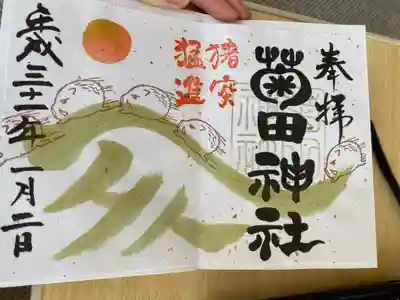 奉拝
菊田神社
猪突
猛進
亥
平成三十一年一月二日